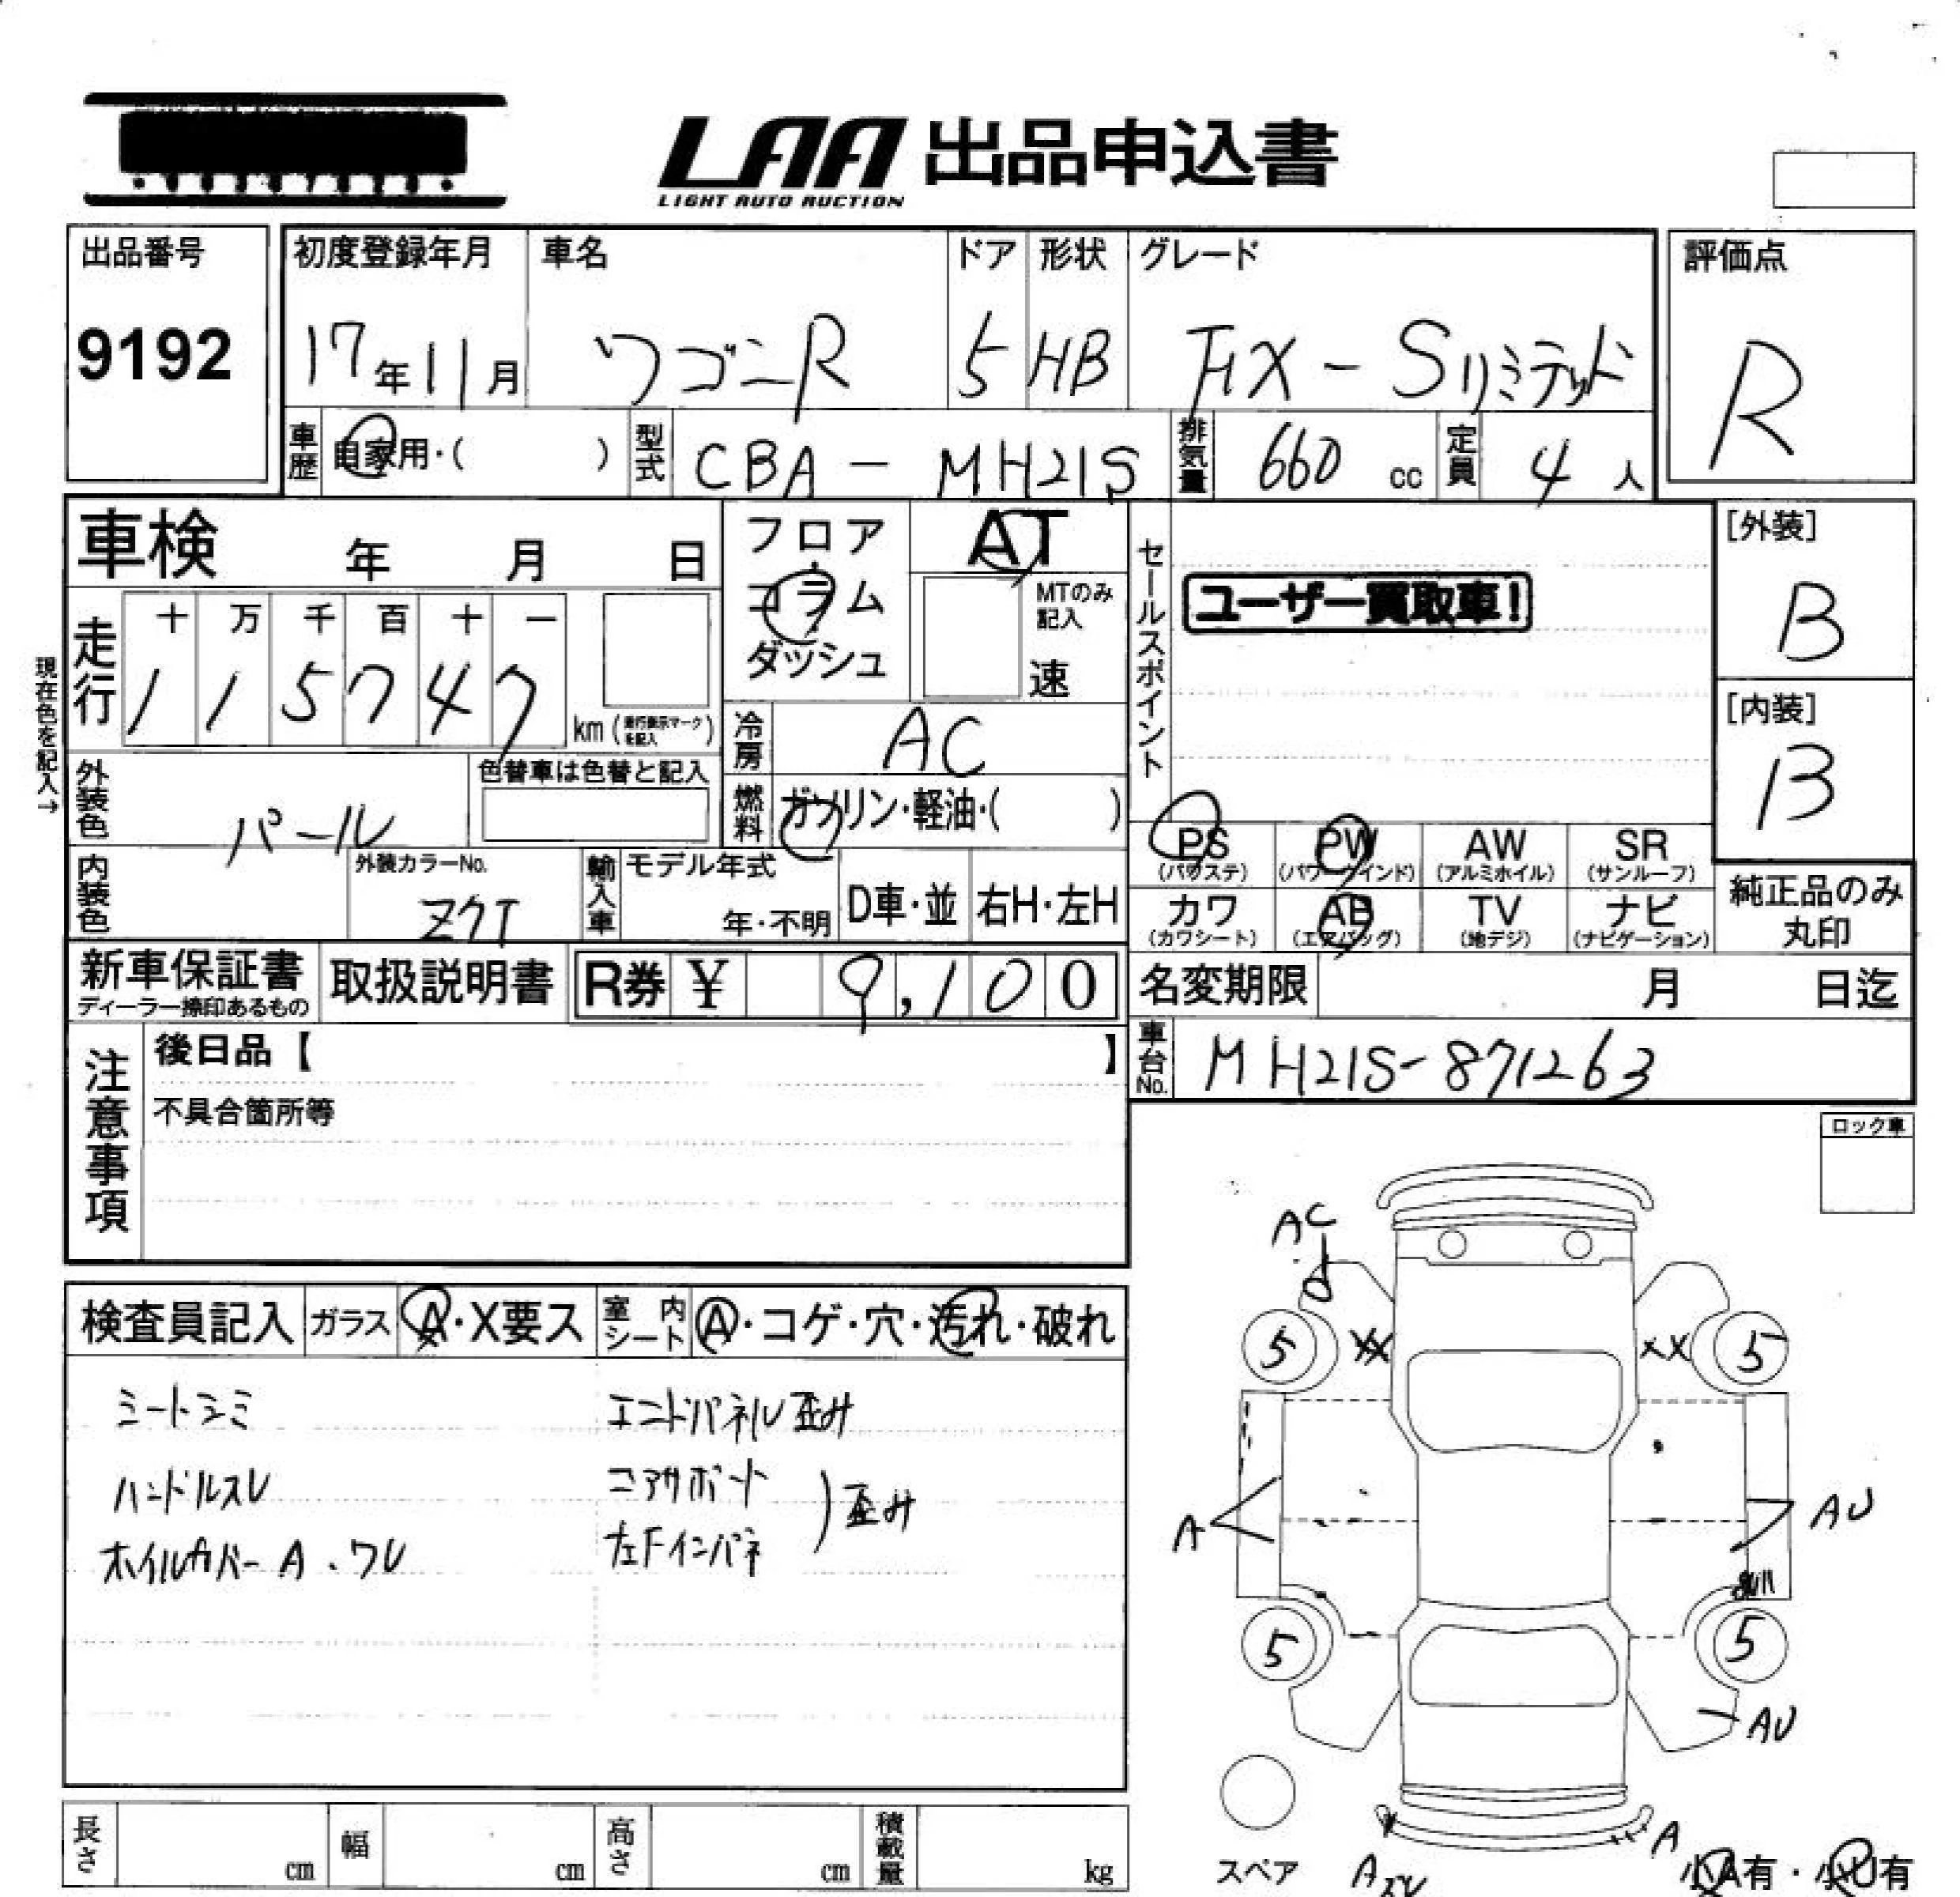 LAA 出品申込書
LIGHT AUTO AUCTION
出品番号
9192
初度登録年月 車名 ドア 形状 グレード
17年11月 ワゴンR 5 HB FX-Sリミテッド
評価点
R
車歴 自家用・( ) 型式 CBA-MH21S 排気量 660 cc 定員 4 人
車検 年 月 日
フロア
コラム
ダッシュ
AT
MTのみ
記入
速
セールスポイント
ユーザー買取車!
[外装]
B
[内装]
B
現在色を記入→
走行
十 万 千 百 十 一
1 1 5 7 4 7 km (走行表示マークを記入)
冷房 AC
外装色 パール
色替車は色替と記入
燃料 ガソリン・軽油・( )
内装色
外装カラーNo.
Z7T
輸入車
モデル年式
年・不明
D車・並 右H・左H
PS PW AW SR
(パワステ) (パワーウインド) (アルミホイル) (サンルーフ)
カワ AB TV ナビ
(カワシート) (エアバッグ) (地デジ) (ナビゲーション)
純正品のみ
丸印
新車保証書
ディーラー捺印あるもの
取扱説明書 R券 ¥ 9,100
名変期限 月 日迄
車台No. MH21S-871263
注意事項
後日品【 】
不具合箇所等
ロック車
検査員記入 ガラス A・X要ス 室内シート A・コゲ・穴・汚れ・破れ
シートシミ エンドパネル歪み
ハンドルスレ コアサポート
ホイルカバーA・ワレ 左Fインパネ
)歪み
AC
5 XX XX 5
A AU
5 5
AU
スペア
A
小A有・小U有
長さ cm 幅 cm 高さ cm 積載量 kg